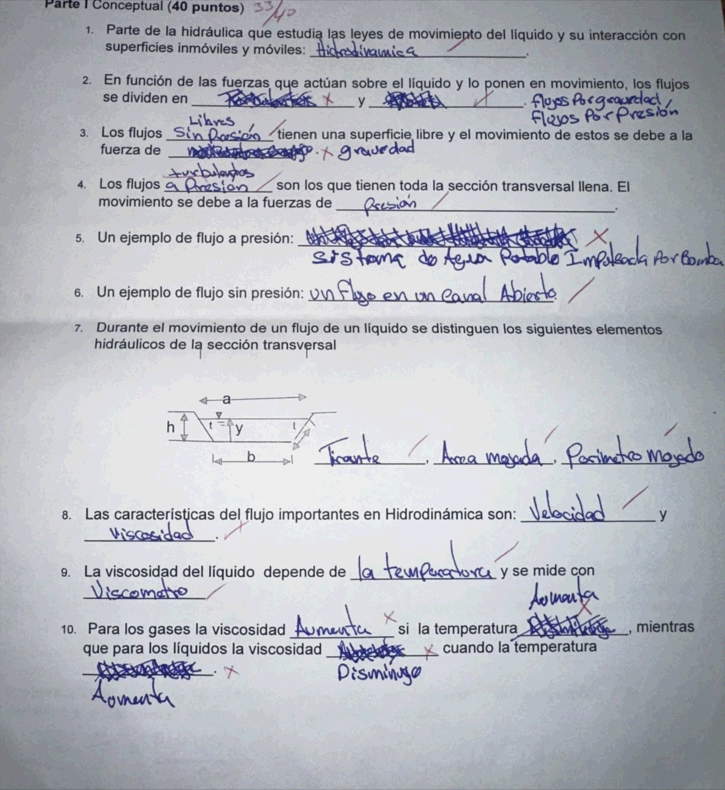 Parte I Conceptual (40 puntos) 33/40
1. Parte de la hidráulica que estudia las leyes de movimiento del líquido y su interacción con
superficies inmóviles y móviles: Hidrodinamica.
2. En función de las fuerzas que actúan sobre el líquido y lo ponen en movimiento, los flujos
se dividen en y . flujos Por gravedad,
flujos Por Presión
Libres
3. Los flujos Sin Presión tienen una superficie libre y el movimiento de estos se debe a la
fuerza de . x gravedad
turbulentos
4. Los flujos a Presion son los que tienen toda la sección transversal llena. El
movimiento se debe a la fuerzas de Presión.
5. Un ejemplo de flujo a presión: x
Sistema de Agua Potable Impulsada Por Bomba
6. Un ejemplo de flujo sin presión: un flujo en un Canal Abierto.
7. Durante el movimiento de un flujo de un líquido se distinguen los siguientes elementos
hidráulicos de la sección transversal
a
h t y t
b Tirante, Area mojada, Perimetro Mojado
8. Las características del flujo importantes en Hidrodinámica son: Velocidad y
Viscosidad.
9. La viscosidad del líquido depende de la temperatura y se mide con
Viscometro
Aumenta
10. Para los gases la viscosidad Aumenta x si la temperatura , mientras
que para los líquidos la viscosidad x cuando la temperatura
. x Disminuye
Aomenta